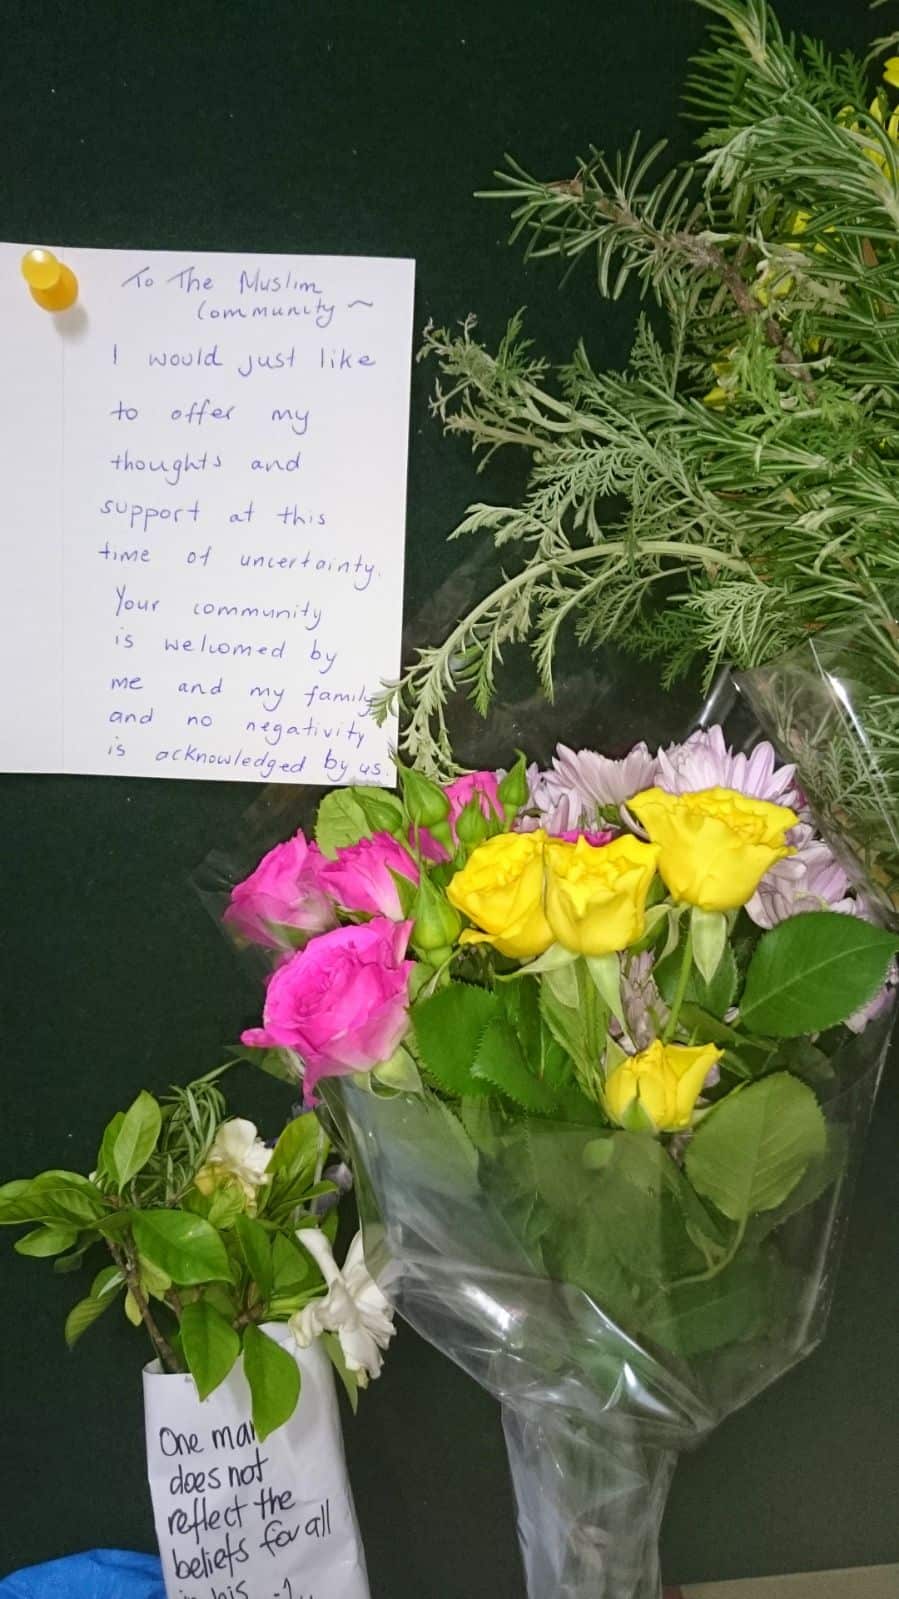 To The Muslim
Community ~
I would just like
to offer my
thoughts and
support at this
time of uncertainty.
Your community
is welcomed by
me and my family
and no negativity
is acknowledged by us.
One man
does not
reflect the
beliefs for all
in his